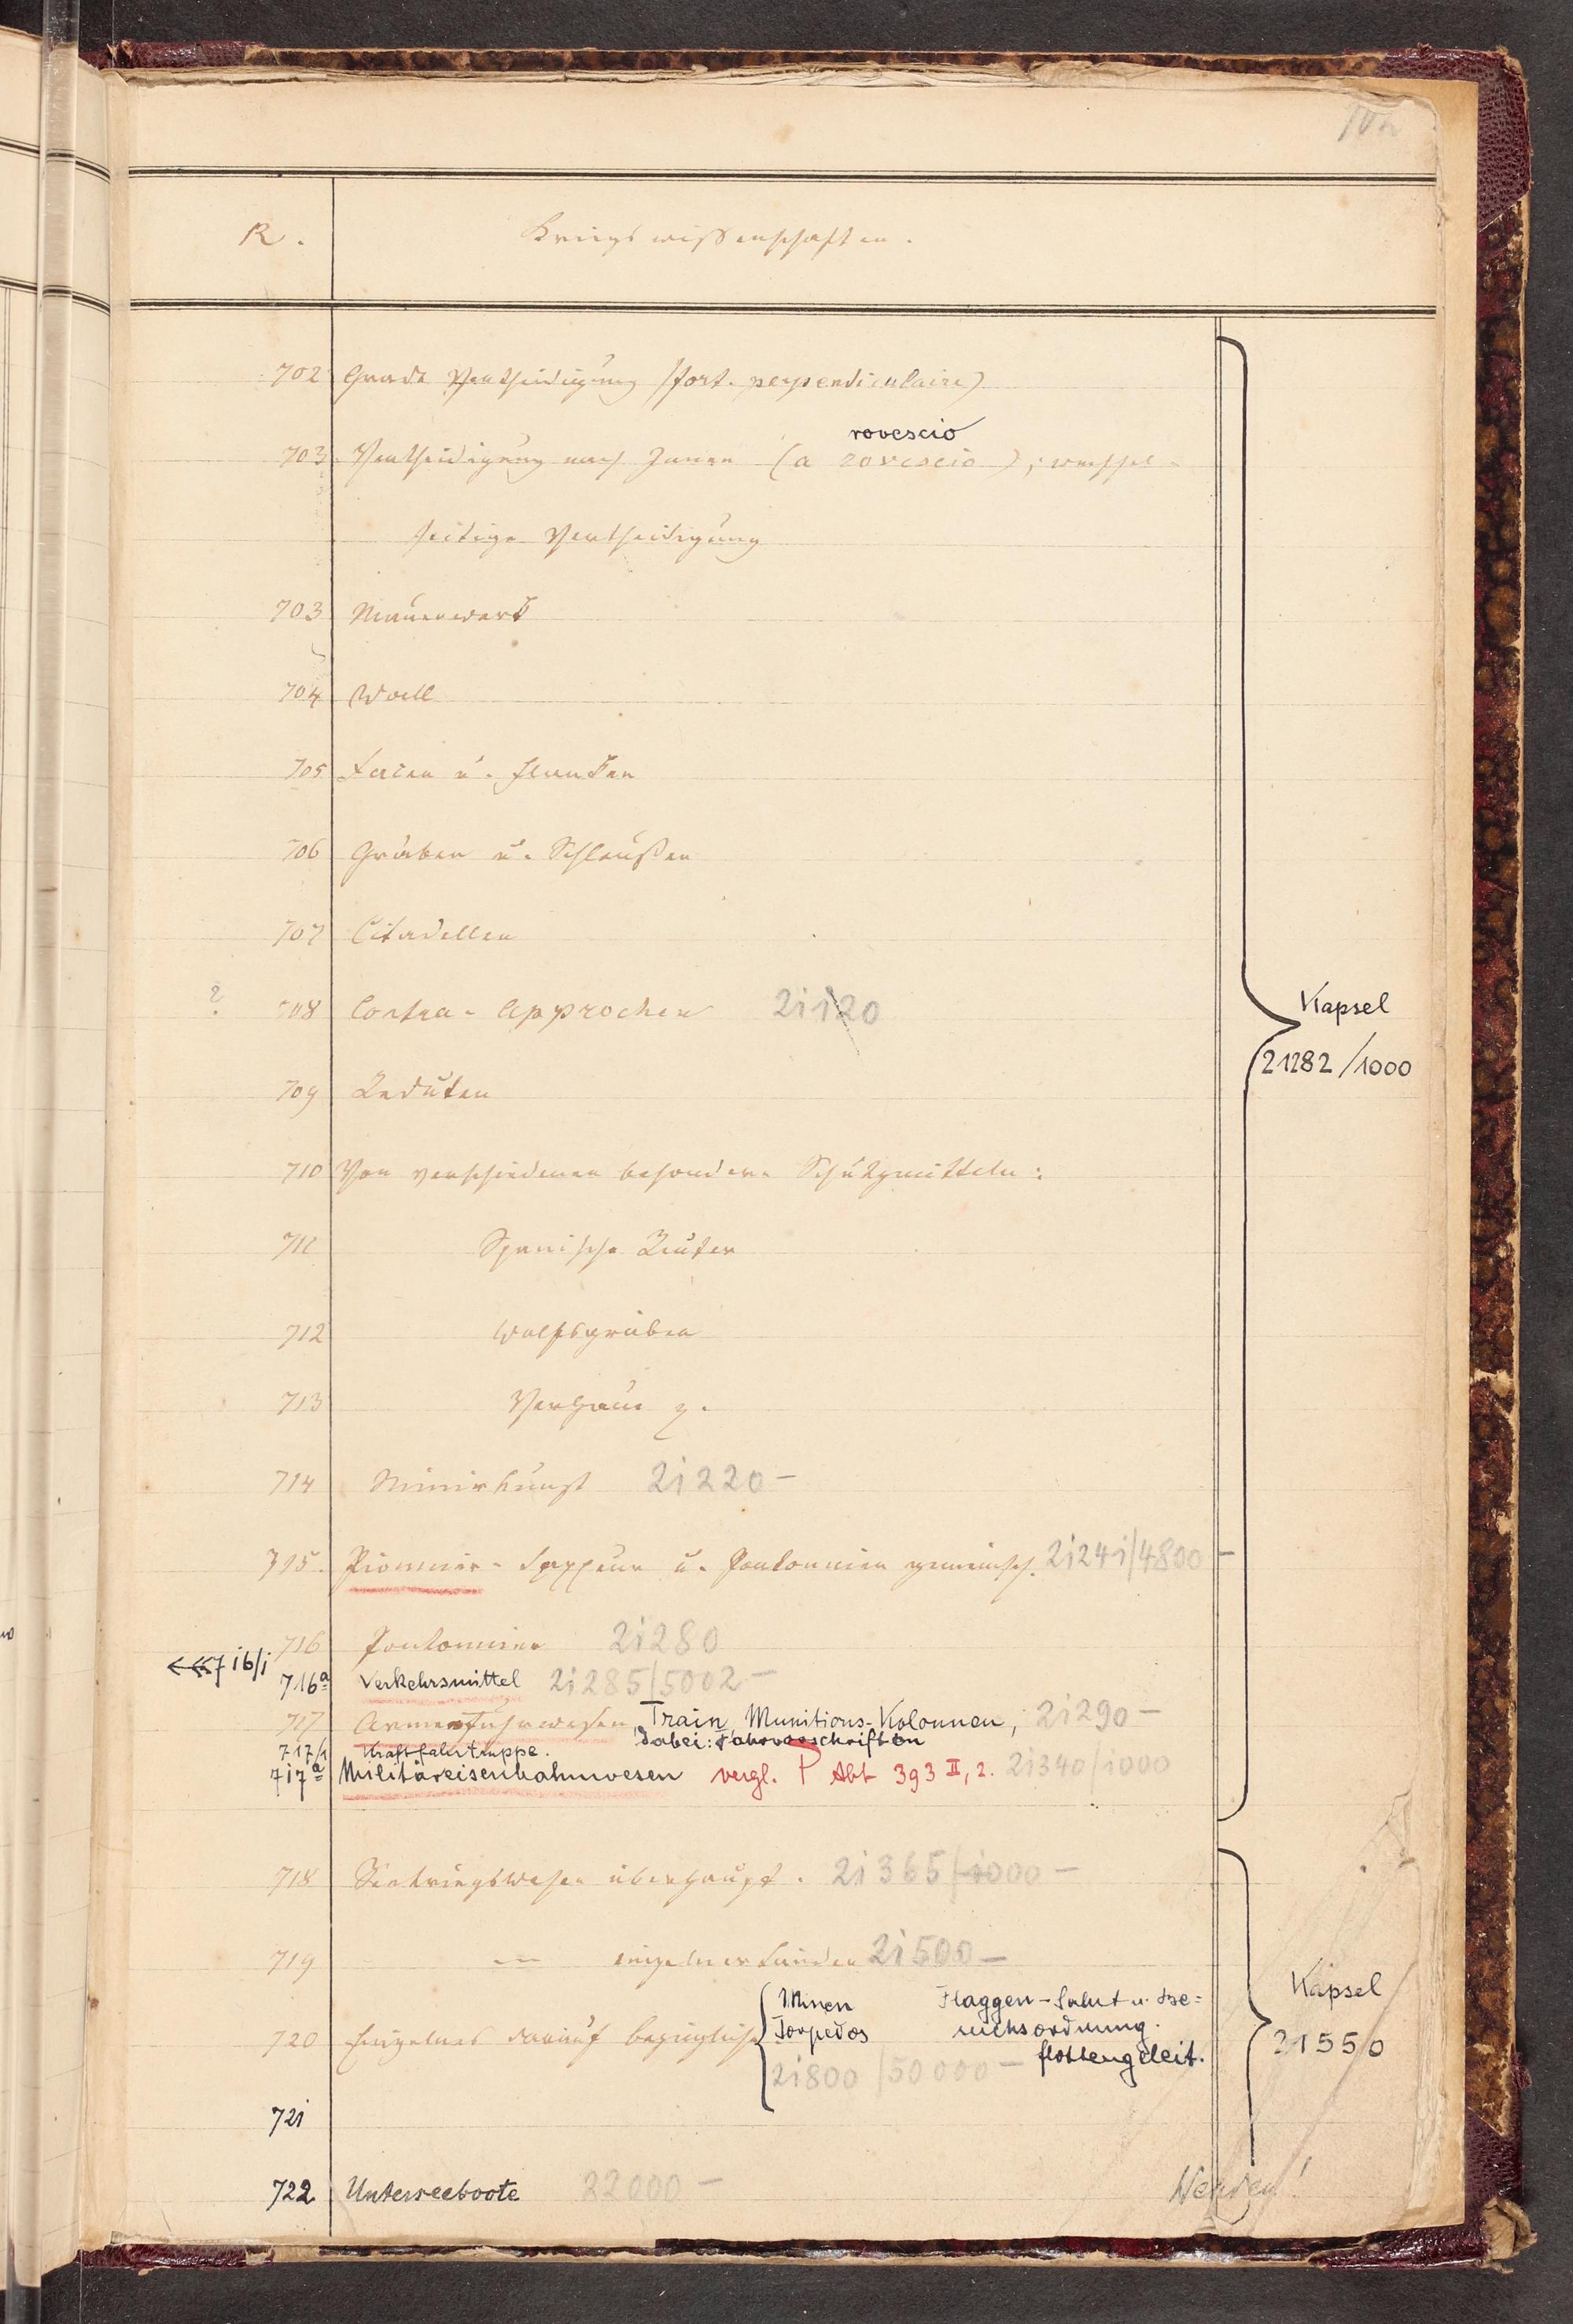 102
R. Kriegswissenschaften.
702 Grade Vertheidigung (fort. perpendiculaire)
rovescio
703 Vertheidigung nach Innen (a rovescio); wechsel-
seitige Vertheidigung
703 Mauerwerk
704 Wall
705 Facen u. Flanken
706 Gräben u. Schleußen
707 Citadellen
? 708 Contra-Approchen 21120
Kapsel
21282/1000
709 Reduten
710 Von verschiedenen besondern Schutzmitteln:
711 Spanische Reuter
712 Wolfsgruben
713 Verhaue
714 Minirkunst 21220 –
715. Pionnier- Sappeur u. Pontonnier gemeinsch. 21241/4800 –
716 Pontonnier 21280
716/1
716a Verkehrsmittel 21285/5002 –
717 Armeefuhrwesen, Train, Munitions-Kolonnen, 21290 –
dabei: Fahrvorschriften
717/1 Kraftfahrtruppe.
717a Militäreisenbahnwesen vergl. P Abt 393 II, 2. 21340/1000
718 Seekriegswesen überhaupt. 21365/1000 –
719 — einzelner Länder 21500 –
Minen Flaggen-Salut u. Be=
720 Einzelnes darauf bezügliche Torpedos suchsordnung.
flottengeleit.
21800/50000 –
Kapsel
21550
721
722 Unterseeboote 22000 –
Wenden!